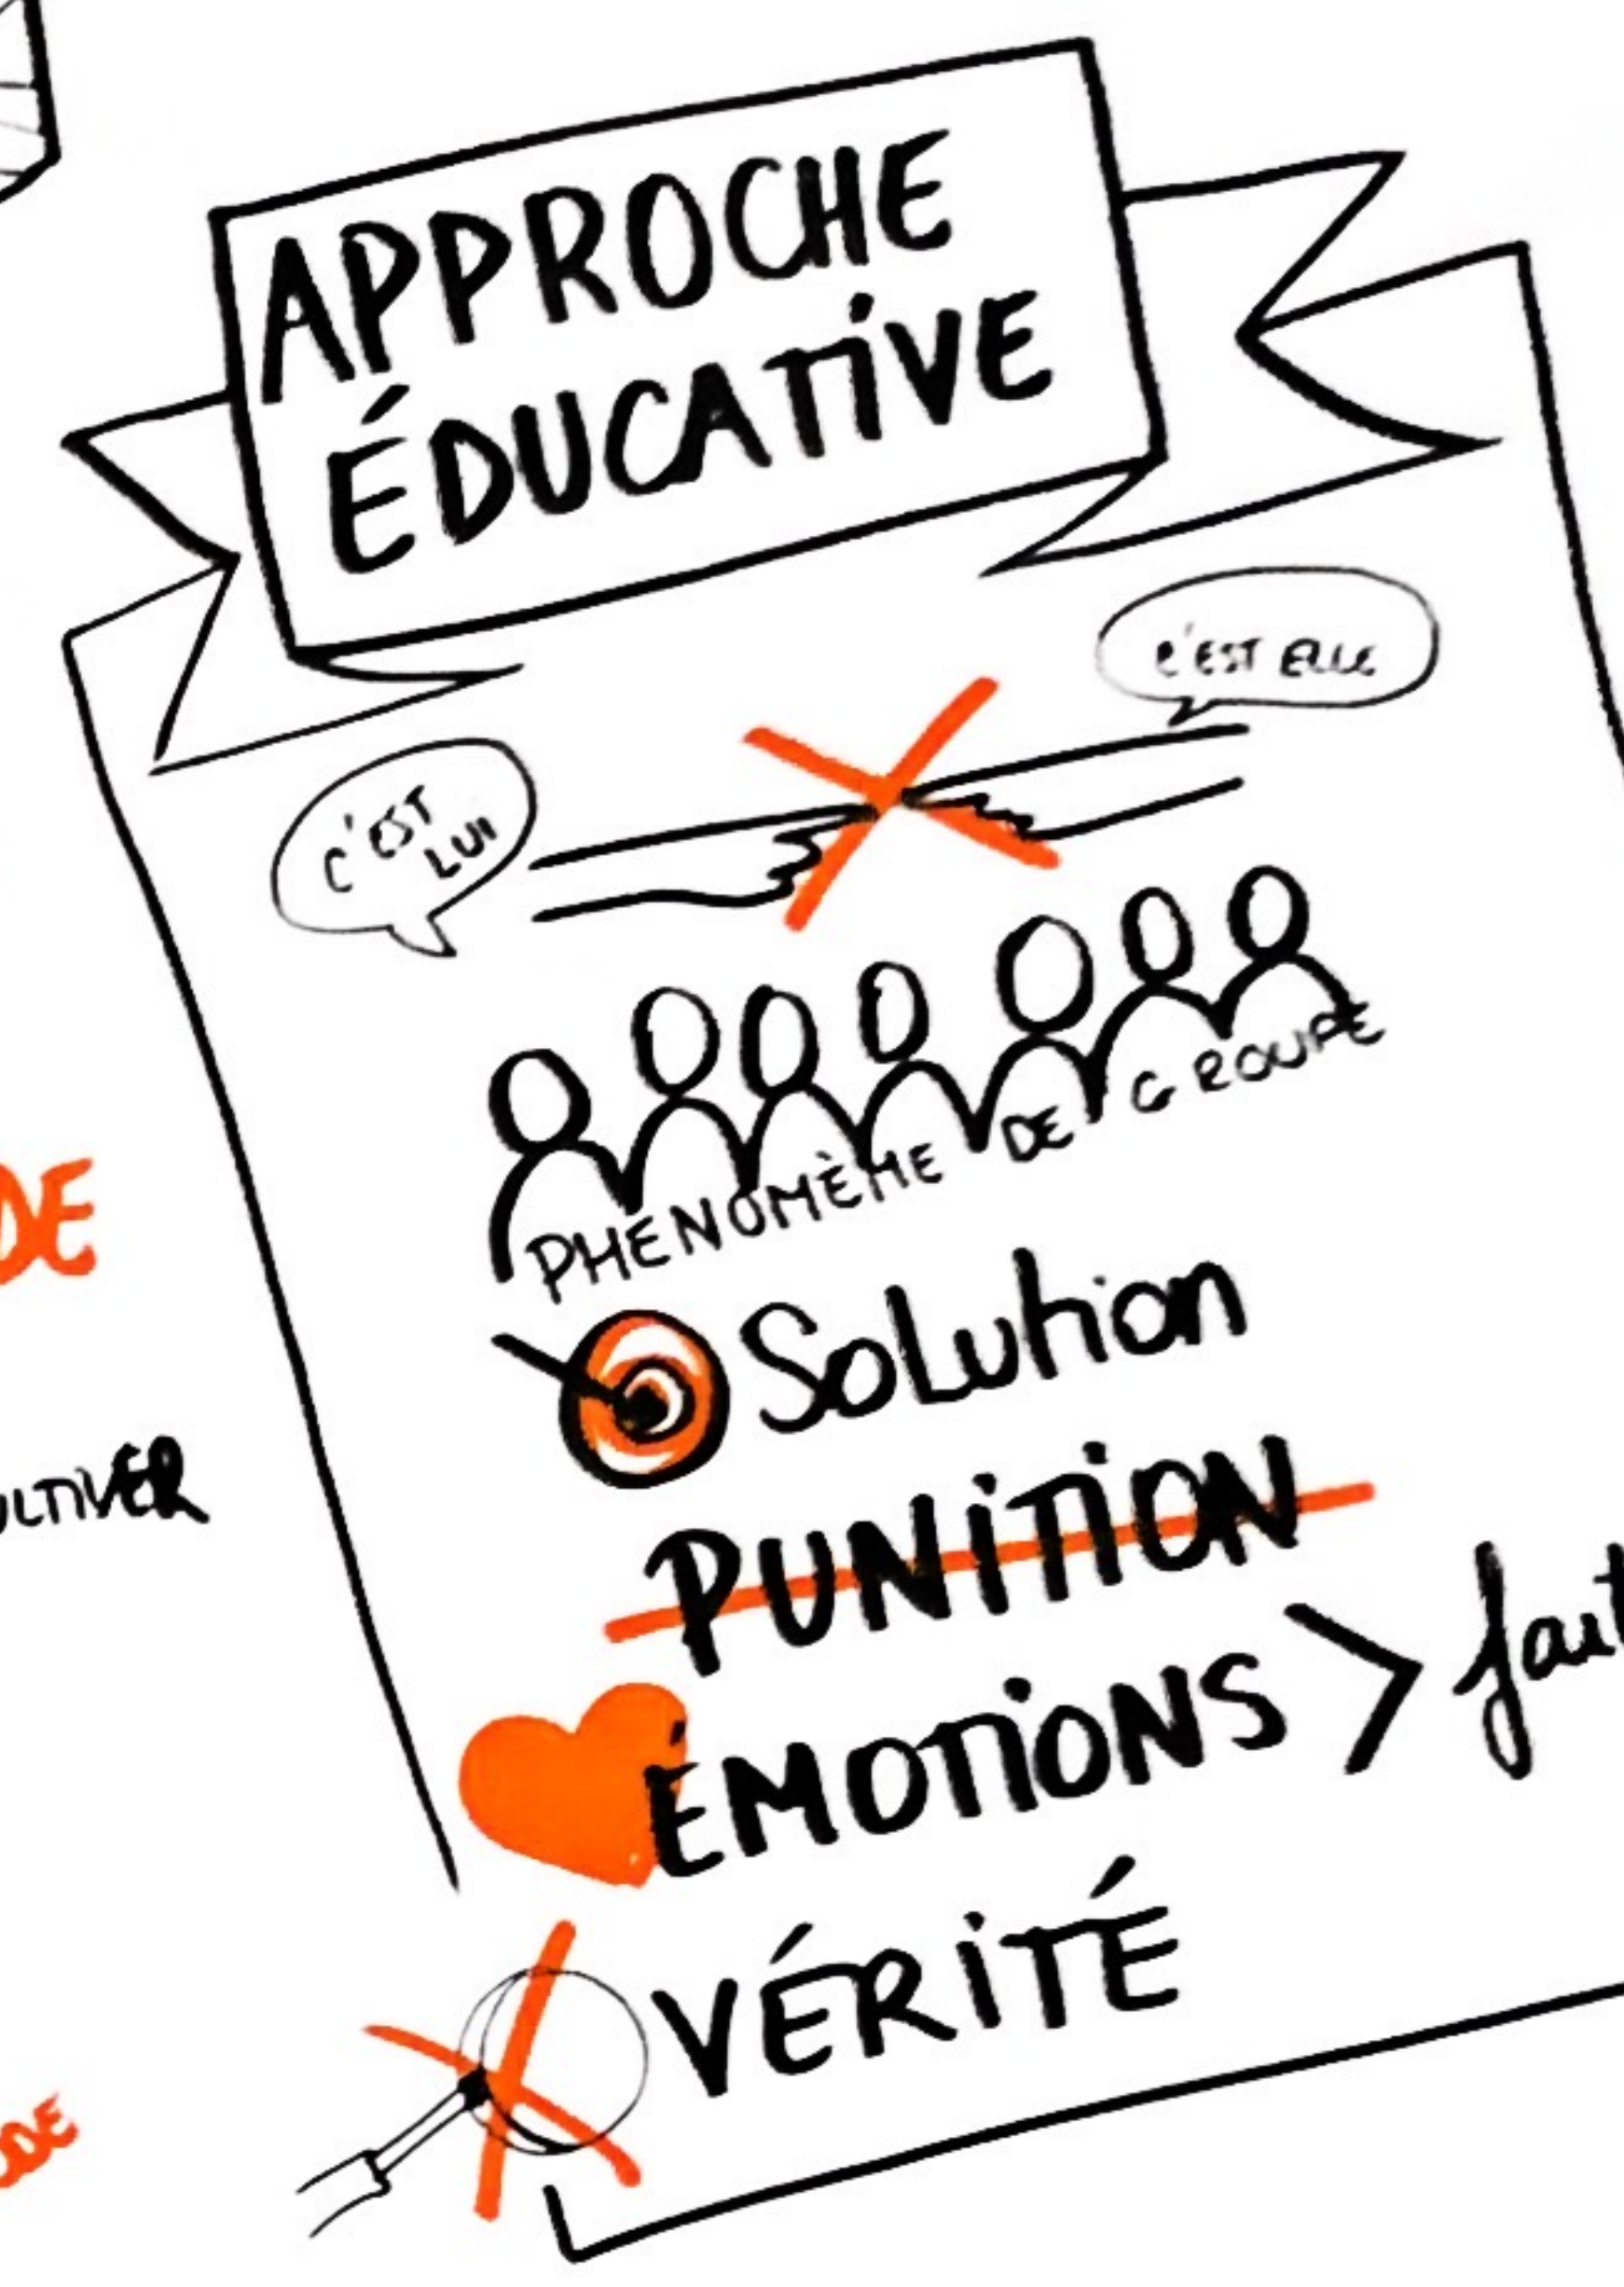 APPROCHE
ÉDUCATIVE
C'EST ELLE
C'EST
LUI
PHÉNOMÈNE DE GROUPE
Solution
PUNITION
ÉMOTIONS > fait
VÉRITÉ
DE
ULTIVER
ODE